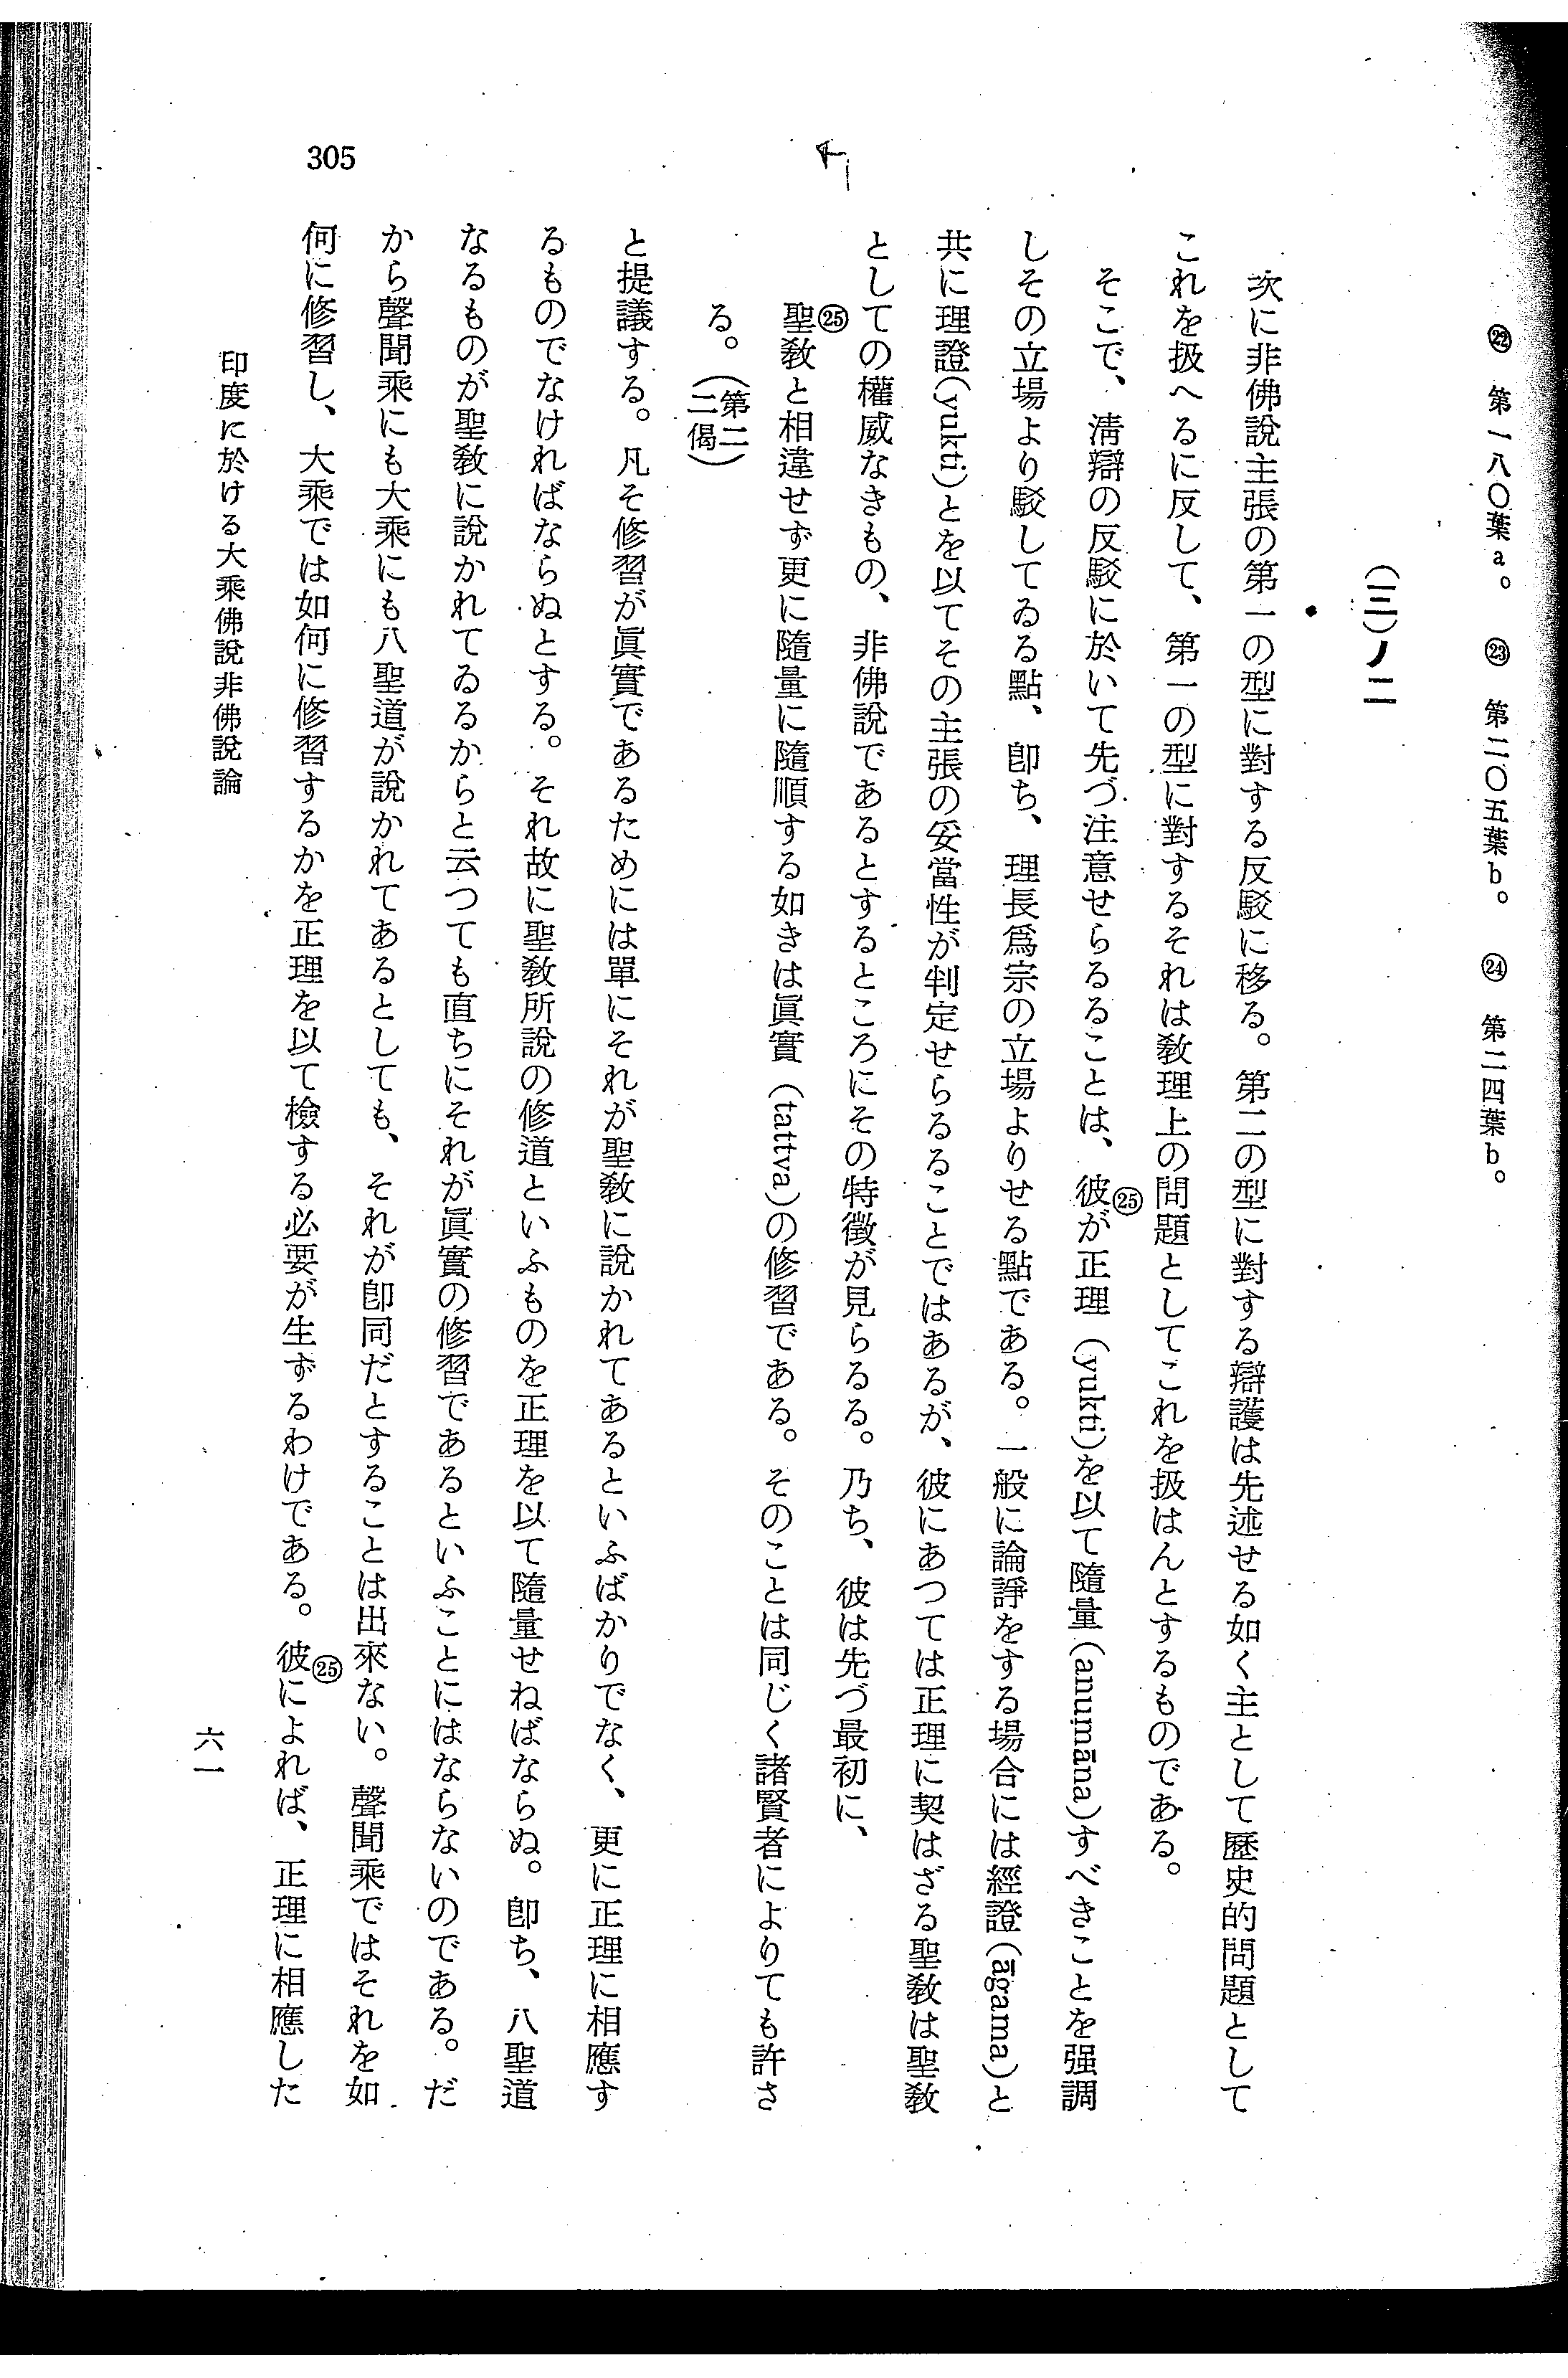 ㉒ 第一八〇葉a。 ㉓ 第二〇五葉b。 ㉔ 第二四葉b。
(三)ノ二
次に非佛說主張の第一の型に對する反駁に移る。第二の型に對する辯護は先述せる如く主として歷史的問題として
これを扱へるに反して、第一の型に對するそれは敎理上の問題としてこれを扱はんとするものである。
そこで、淸辯の反駁に於いて先づ注意せらるることは、彼㉕が正理(yukti)を以て隨量(anumāna)すべきことを强調
しその立場より駁してゐる點、卽ち、理長爲宗の立場よりせる點である。一般に論諍をする場合には經證(āgama)と
共に理證(yukti)とを以てその主張の妥當性が判定せらるることではあるが、彼にあつては正理に契はざる聖敎は聖敎
としての權威なきもの、非佛說であるとするところにその特徵が見らるる。乃ち、彼は先づ最初に、
聖㉕敎と相違せず更に隨量に隨順する如きは眞實(tattva)の修習である。そのことは同じく諸賢者によりても許さ
る。(第二二偈)
と提議する。凡そ修習が眞實であるためには單にそれが聖敎に說かれてあるといふばかりでなく、更に正理に相應す
るものでなければならぬとする。それ故に聖敎所說の修道といふものを正理を以て隨量せねばならぬ。卽ち、八聖道
なるものが聖敎に說かれてゐるからと云つても直ちにそれが眞實の修習であるといふことにはならないのである。だ
から聲聞乘にも大乘にも八聖道が說かれてあるとしても、それが卽同だとすることは出來ない。聲聞乘ではそれを如
何に修習し、大乘では如何に修習するかを正理を以て檢する必要が生ずるわけである。彼㉕によれば、正理に相應した
印度に於ける大乘佛說非佛說論
六一
305